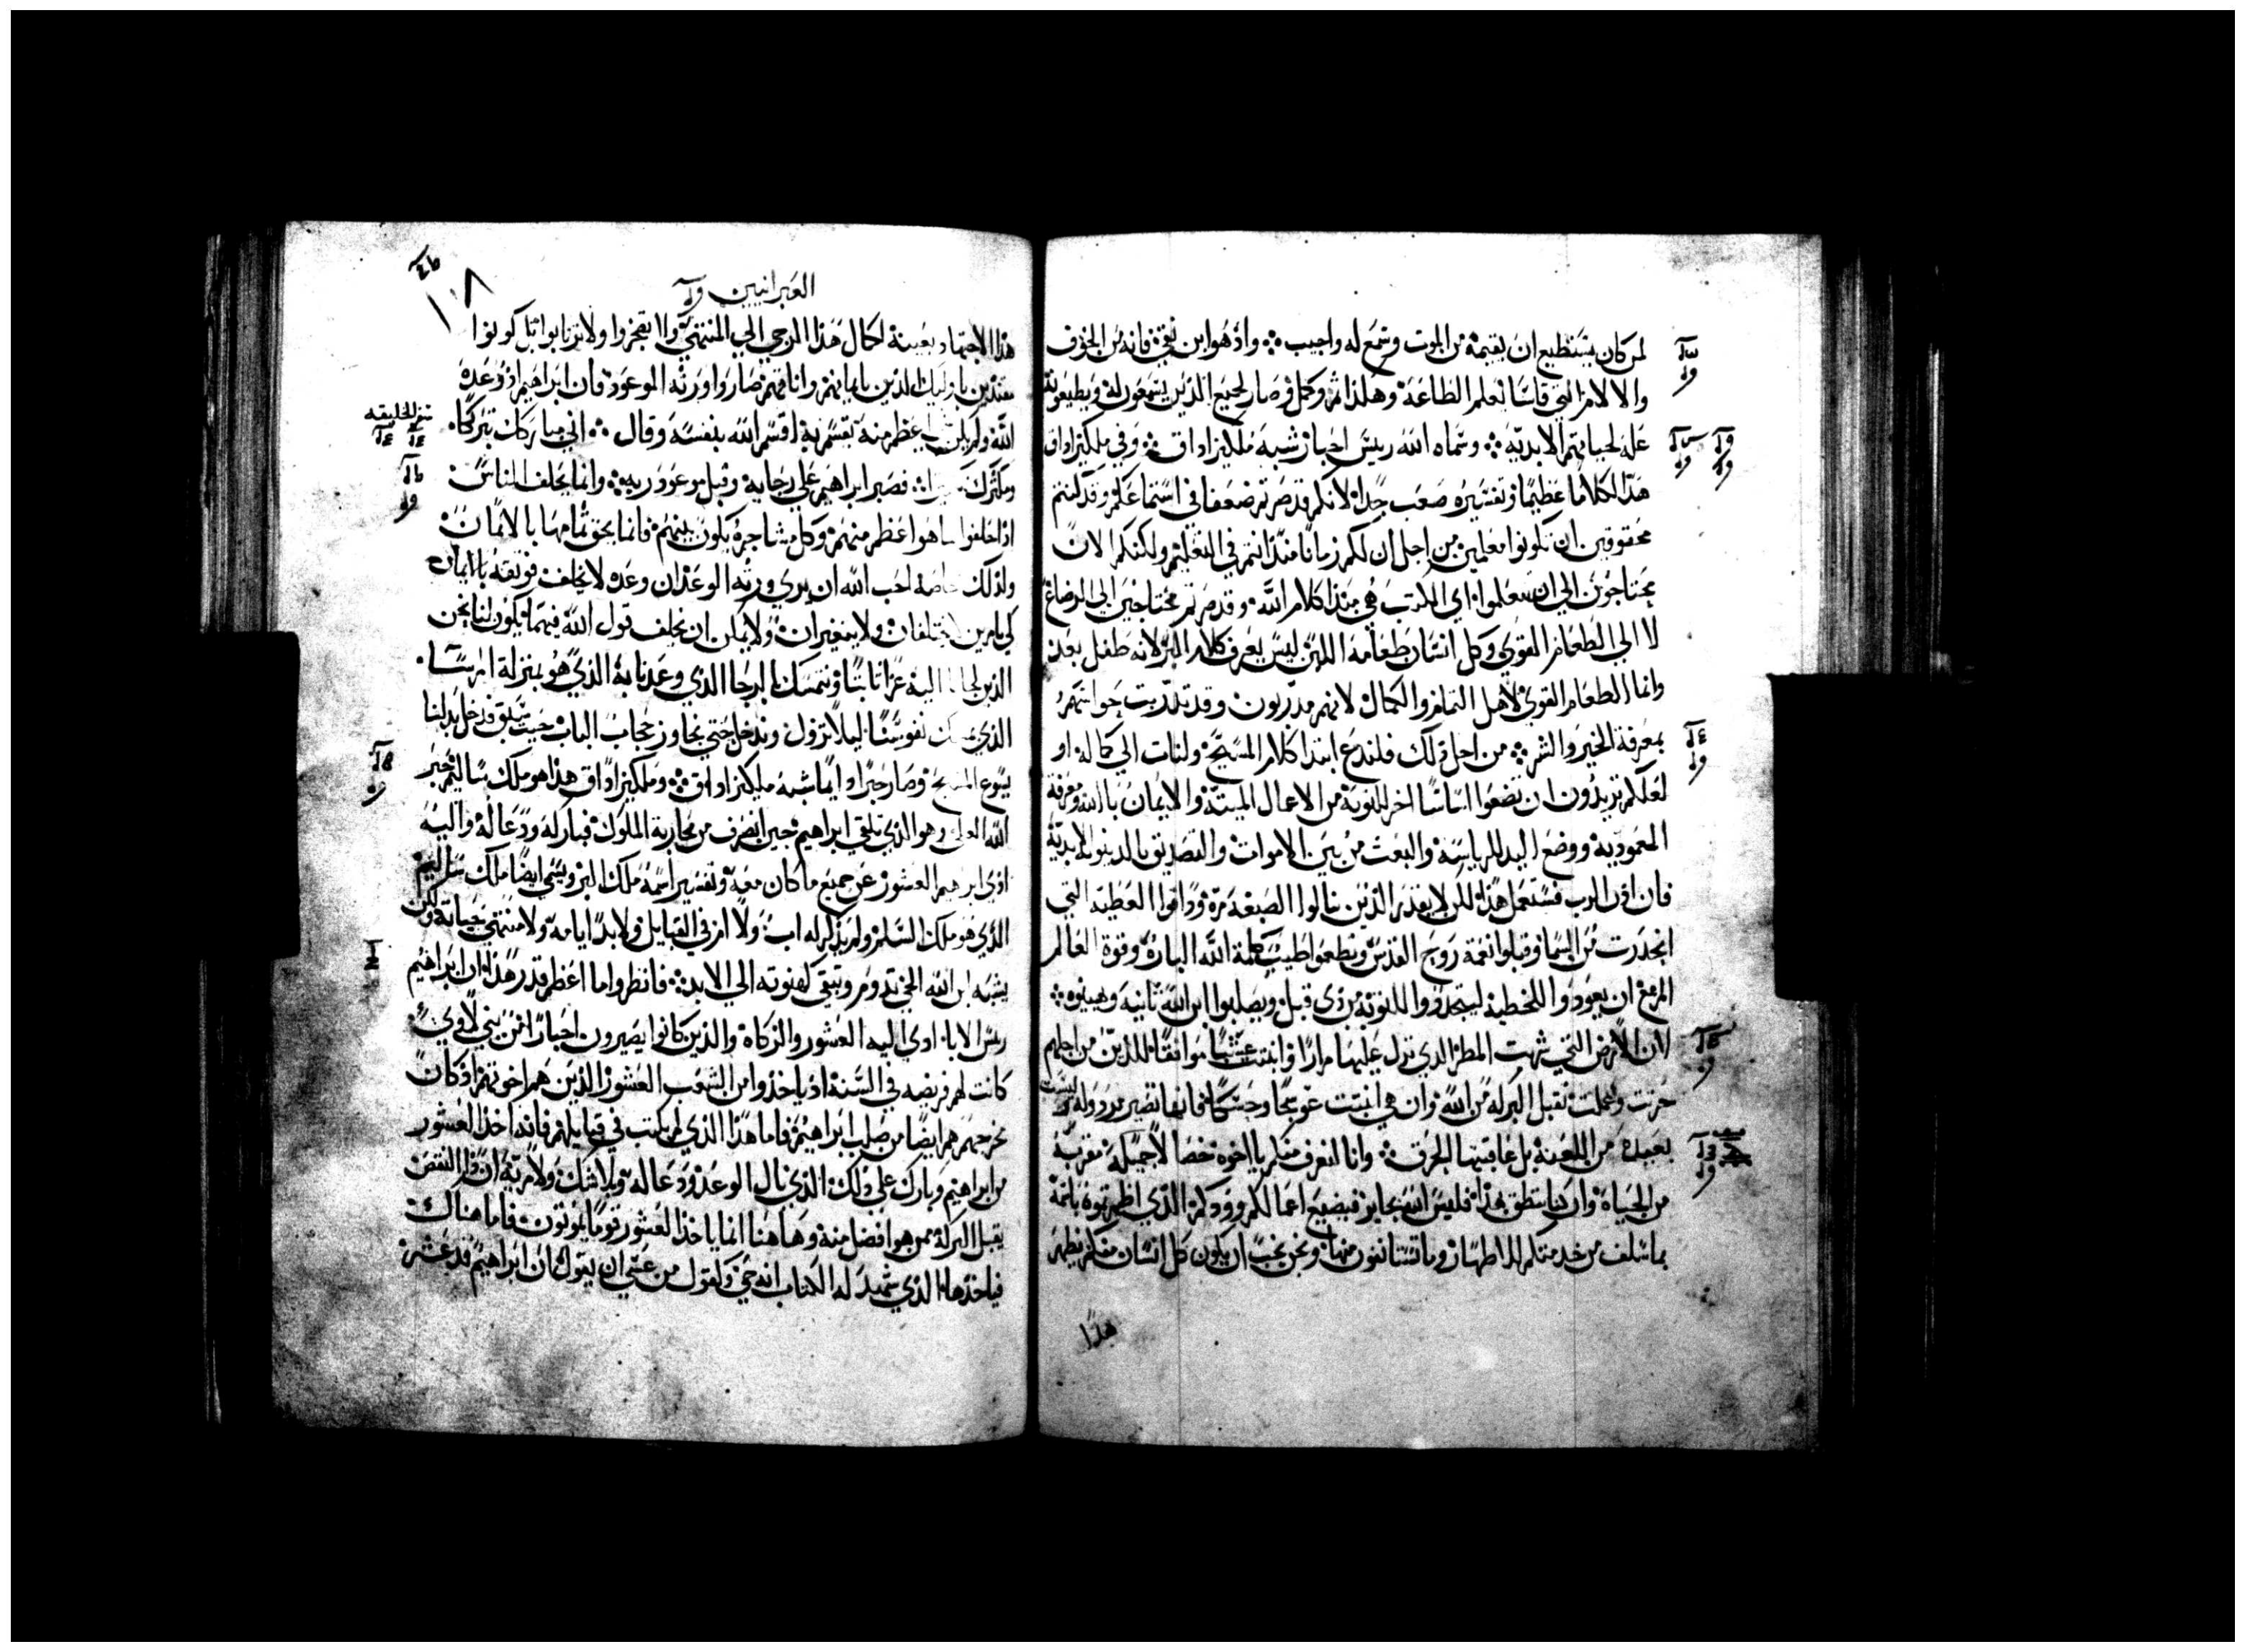 لمن كان يستطيع ان يقيمه من الموت وسمع له واجيب ❖ واذ هو ابن فانه من الخوف
والالام التي قاساها تعلم الطاعة وهكذا وكمل وصار لجميع الذين يسمعون له ويطيعونه
علة لحياتهم الابدية ❖ وسماه الله ريس احبار شبه ملكيزاداق ❖ وفي ملكيزاداق
هذا الكلام عظيما وتفسيره صعب جدا لانكم قد صرتم ضعفا في استماعكم وقد كنتم
محقوقين ان تكونوا معلمين من اجل ان لكم زمانا منذ انتم في التعليم ولكنكم الان
محتاجون الي ان تتعلموا اي الكتب هي مبتدا كلام الله وقد صرتم محتاجين الي الرضاع
لا الي الطعام القوي وكل انسان طعامه اللبن ليس يعرف كلام البر لانه طفل بعد
وانما الطعام القوي لاهل التمام والكمال لانهم مدربون وقد تدربت حواسهم
بمعرفة الخير والشر ❖ من اجل ذلك فلندع ابتدا كلام المسيح ولنات الي كماله او
لعلكم تريدون ان تضعوا اساسا اخر للتوبة من الاعمال الميتة والايمان بالله ومعرفة
المعمودية ووضع اليد للرياسة والبعث من بين الاموات والتصديق بالدينونة الابدية
فان اذن الرب فسنعمل هذا لكن لا يقدر الذين نالوا الصبغة مرة وذاقوا العطية التي
انحدرت من السما وقبلوا نعمة روح القدس وتطعموا طيب كلمة الله البارة وقوة العالم
المزمع ان يعودوا للخطية ليتجددوا للتوبة من ذي قبل ويصلبوا ابن الله ثانية ويهينوه ❖
لان الارض التي شربت المطر الذي نزل عليها مرارا وانبتت عشبا موافقا للذين من اجلهم
حرثت وعملت تقبل البركة من الله وان هي انبتت عوسجا وحسكا فانها تصير مردولة وليست
بعيدة من اللعنة بل عاقبتها الحرق ❖ وانا لنعرف منكم يا اخوة خصالا جميلة مقربة
من الحياة وان كنا ننطق بهذا فليس الله بجاير فيضيع اعمالكم وودكم الذي اظهرتموه باسمه
بما سلف من خدمتكم للاطهار وما تستانفون منها ونحن نحب ان يكون كل انسان منكم يظهر
هذا
١٠٨
العبرانيين
هذا الاجتهاد بعينه لكمال هذا الرجي الي المنتهي ولا تضجروا ولا ترتابوا بل كونوا
مقتدين باوليك الذين بايمانهم واناتهم صاروا ورثه الموعود فان ابراهيم اذ وعده
الله ولم يكن اعظم منه يقسم به اقسم الله بنفسه وقال ❖ اني مباركك تبركا
ومكثرك ❖ فصبر ابراهيم علي رجايه وقبل موعود ربه ❖ وانما يحلف الناس
اذا حلفوا بما هو اعظم منهم وكل مشاجرة يكون بينهم فانما يحق تمامها بالايمان
ولذلك خاصة احب الله ان يري ورثه الوعد ان وعده لا يخلف فوثقه بالايمان
لكي بامرين لا يختلفان ولا يتغيران ولا يمكن ان يخلف قول الله فيهما يكون لنا نحن
الذين لجانا اليه عزا ثابتا ونتمسك بالرجا الذي وعدنا به الذي هو بمنزلة المرسا
الذي يمسك نفوسنا ليلا تزول وندخل حتي نجاوز حجاب الباب حيث سبق فدخل بدلنا
يسوع المسيح وصار حبرا دايما شبه ملكيزاداق ❖ وملكيزاداق هذا هو ملك ساليم حبر
الله العلي وهو الذي تلقي ابراهيم حين انصرف من محاربة الملوك فبارك له ودعا له واليه
ادي ابرهيم العشور عن جميع ما كان معه وتفسير اسمه ملك البر ويسمي ايضا ملك ساليم
الذي هو ملك السلم ولم يذكر له اب ولا ام في القبايل ولا بدا ايامه ولا منتهي حياته ولكن
يشبه ابن الله الحي تدوم وتبقي كهنوته الي الابد ❖ فانظروا ما اعظم قدر هذا ان ابراهيم
ريس الابا ادي اليه العشور والزكاة والذين كانوا يصيرون احبارا من بني لاوي
كانت لهم فريضه في السنة ان ياخذوا من الشعب العشور الذين هم اخوتهم اذ كان
مخرجهم هم ايضا من صلب ابراهيم فاما هذا الذي لم يكتب في قبايلهم فانه اخذ العشور
من ابراهيم وبارك علي ذلك الذي نال الوعد ودعا له وبلا شك ولا مرية ان ذا النقص
يقبل البركة ممن هو افضل منه وهاهنا انما ياخذ العشور قوما يموتون فاما هناك
فياخذها الذي شهد له الكتاب انه حي ولقول من عسي ان يقول ان ابراهيم قد عشر
سفر الخليقه